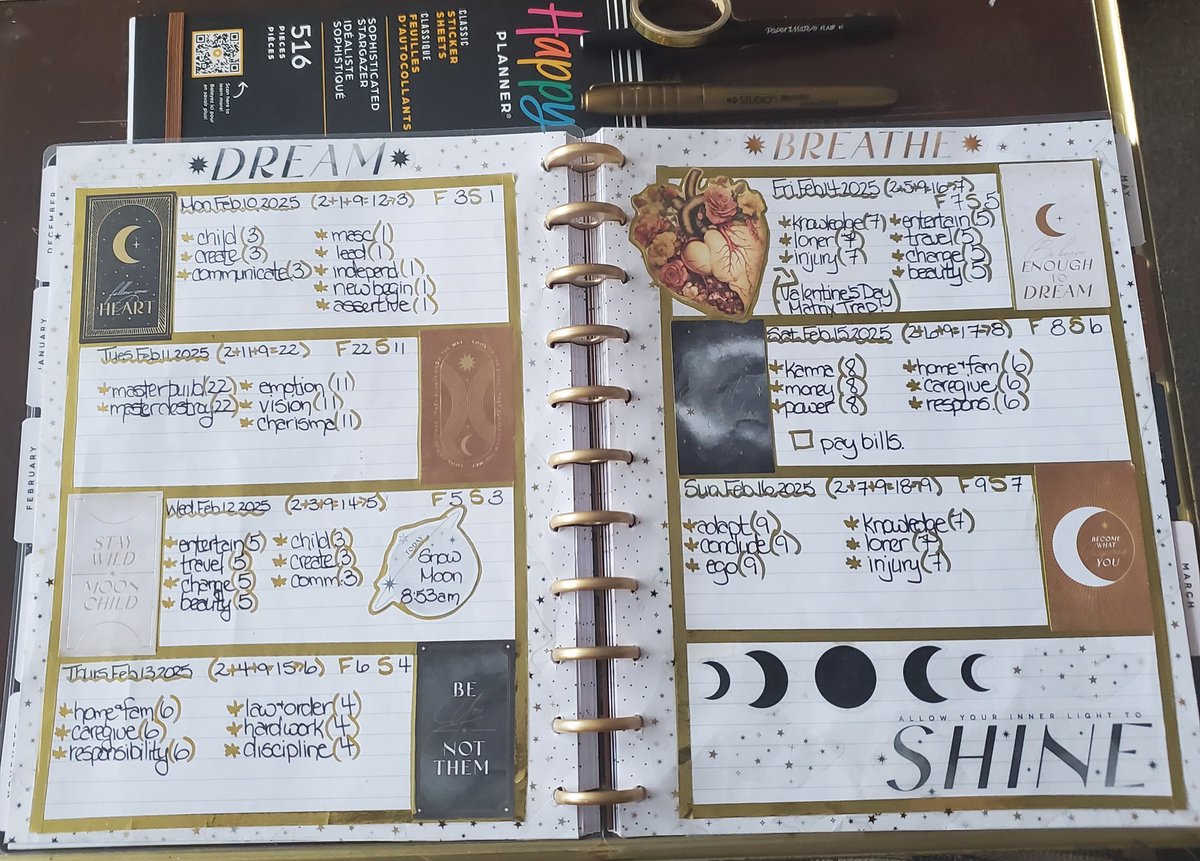 516
PIECES
PIÈCES
Scan here to
learn more!
Balayez ici pour
en savoir plus!
SOPHISTICATED
STARGAZER
IDÉALISTE
SOPHISTIQUÉ
CLASSIC
STICKER
SHEETS
CLASSIQUE
FEUILLES
D'AUTOCOLLANTS
Happy
PLANNER®
PAPER MATE® FLAIR
STUDIO Metallic
DECEMBER
JANUARY
FEBRUARY
DREAM
follow your
HEART
Mon. Feb. 10. 2025 (2+1+9=12→3) F 3 S 1
child (3)
create (3)
communicate (3)
masc (1)
lead (1)
independ. (1)
new begin (1)
assertive (1)
Tues. Feb. 11. 2025 (2+11+9=22) F 22 S 11
master build (22)
master destroy (22)
emotion (11)
vision (11)
charisma (11)
STAY
WILD
MOON
CHILD
Wed. Feb. 12. 2025 (2+3+9=14→5) F 5 S 3
entertain (5)
travel (5)
change (5)
beauty (5)
child (3)
create (3)
comm. (3)
TODAY
Snow
Moon
8:53am
Thurs. Feb. 13. 2025 (2+4+9=15→6) F 6 S 4
home+fam (6)
caregive (6)
responsibility (6)
law+order (4)
hard work (4)
discipline (4)
BE
NOT
THEM
BREATHE
Fri. Feb. 14. 2025 (2+5+9=16→7)
F 7 S 5
knowledge (7)
loner (7)
injury (7)
entertain (5)
travel (5)
change (5)
beauty (5)
Valentine's Day
Matrix Trap!
Be brave
ENOUGH
TO
DREAM
Sat. Feb. 15. 2025 (2+6+9=17→8) F 8 S 6
karma (8)
money (8)
power (8)
home+fam (6)
caregive (6)
respons. (6)
pay bills.
Sun. Feb. 16. 2025 (2+7+9=18→9) F 9 S 7
adapt (9)
conclude (9)
ego (9)
knowledge (7)
loner (7)
injury (7)
BECOME
WHAT
YOU
ALLOW YOUR INNER LIGHT TO
SHINE
MAY
MARCH